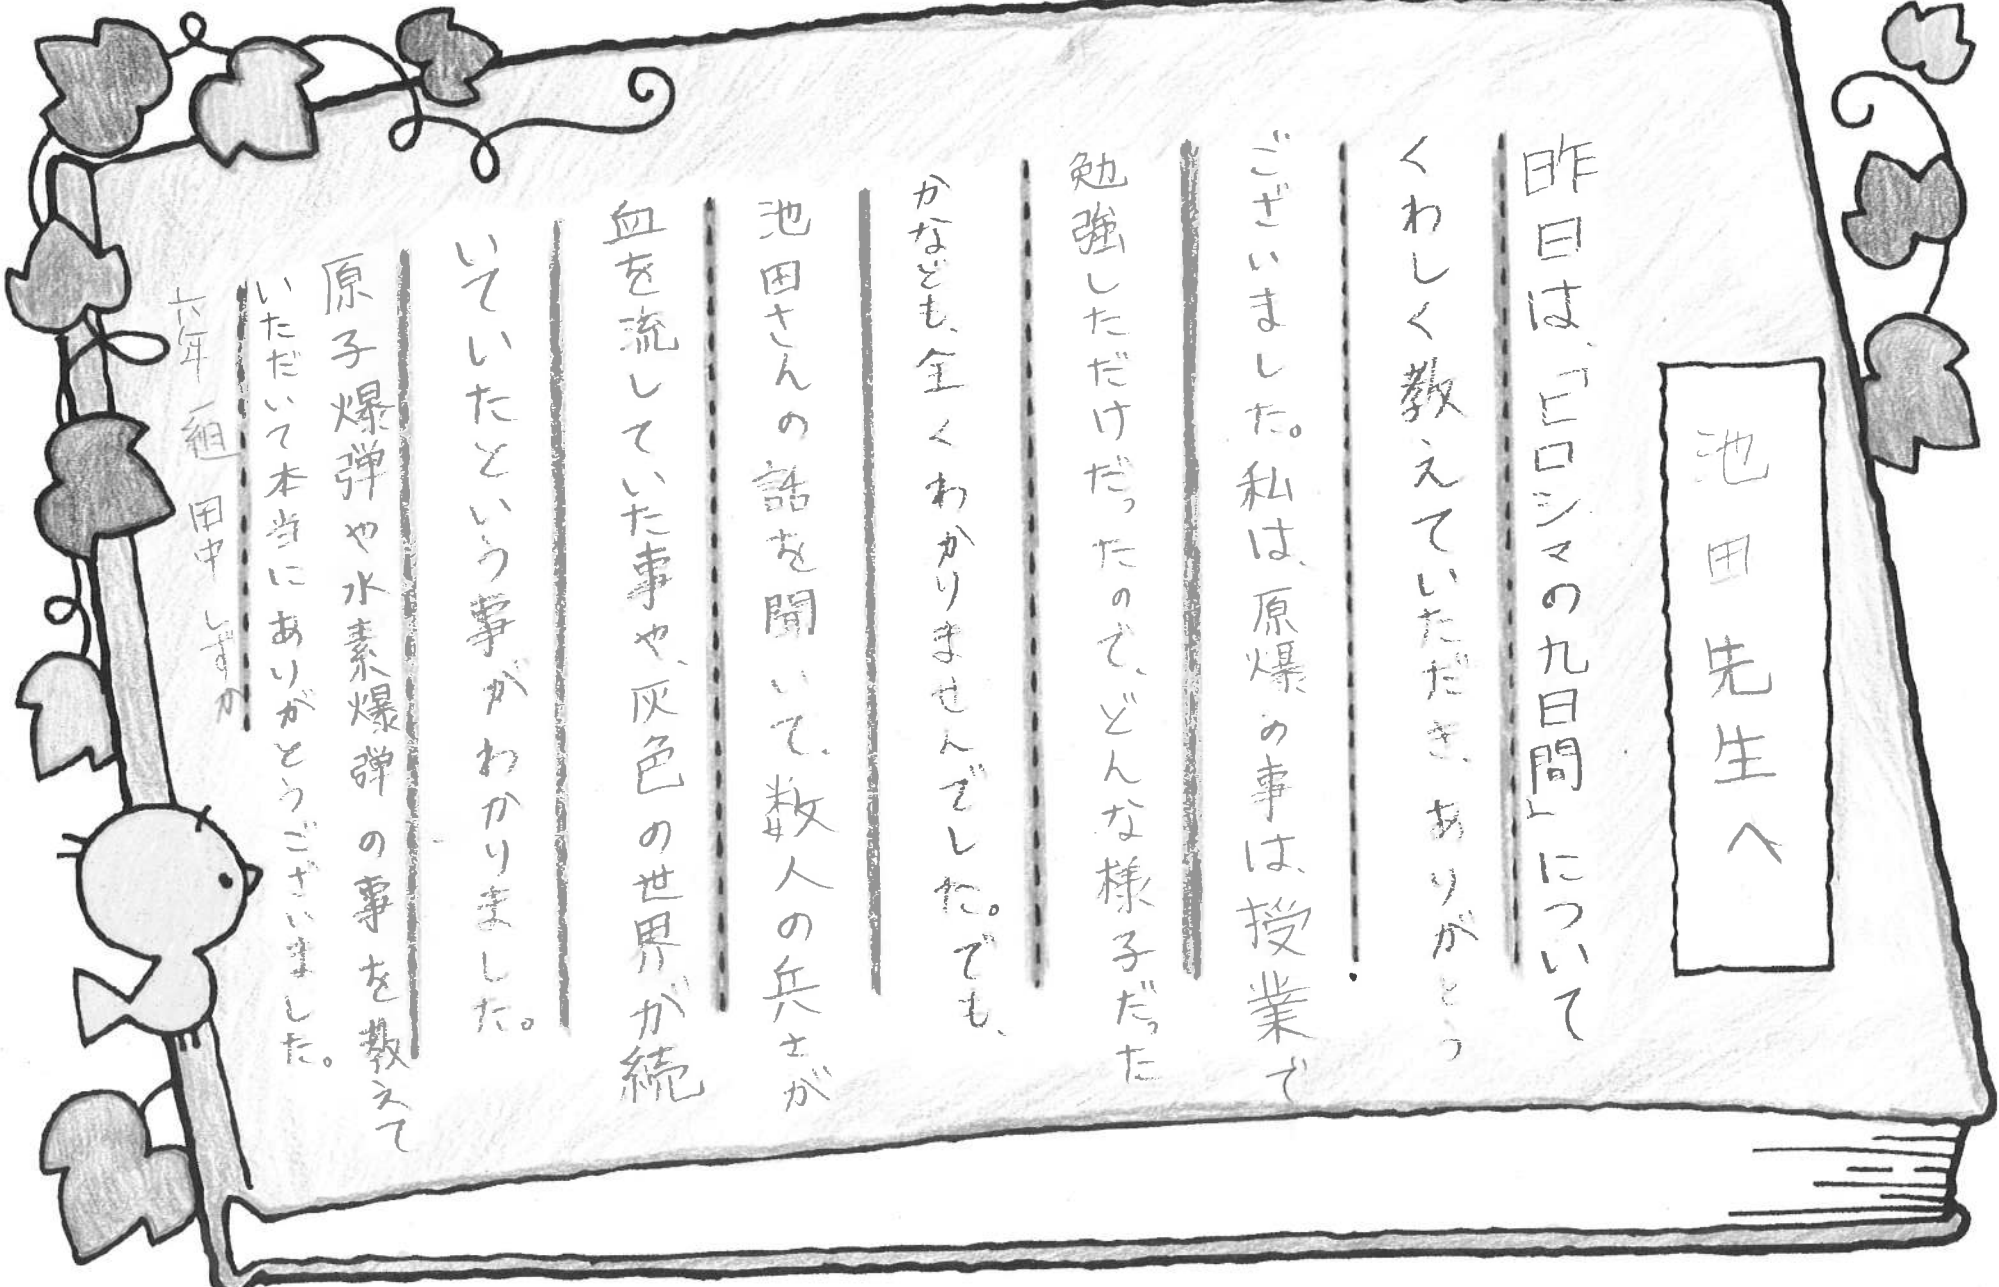 池田先生へ
昨日は、「ヒロシマの九日間」について
くわしく教えていただき、ありがとう
ございました。私は、原爆の事は、授業で
勉強しただけだったので、どんな様子だった
かなども、全くわかりませんでした。でも、
池田さんの話を聞いて、数人の兵さが
血を流していた事や、灰色の世界が続
いていたという事がわかりました。
原子爆弾や水素爆弾の事を教えて
いただいて本当にありがとうございました。
六年一組 田中しずか